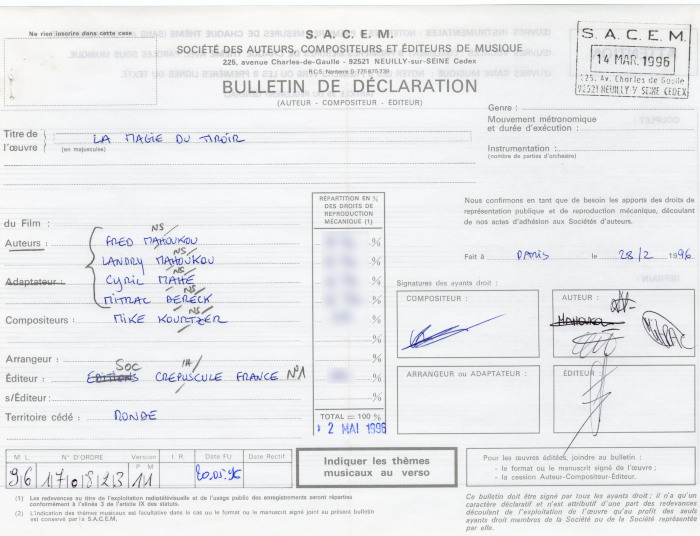 Ne rien inscrire dans cette case
S. A. C. E. M.
SOCIÉTÉ DES AUTEURS, COMPOSITEURS ET ÉDITEURS DE MUSIQUE
225, avenue Charles-de-Gaulle - 92521 NEUILLY-sur-SEINE Cedex
R.C.S. Nanterre D 775 675 739
BULLETIN DE DÉCLARATION
(AUTEUR - COMPOSITEUR - ÉDITEUR)
S. A. C. E. M.
14 MAR. 1996
225, Av. Charles de Gaulle
92521 NEUILLY S/ SEINE CEDEX
Genre :
Mouvement métronomique
et durée d'exécution :
Instrumentation :
(nombre de parties d'orchestre)
Titre de
l'œuvre
(en majuscules)
LA MAGIE DU TIROIR
RÉPARTITION EN %
DES DROITS DE
REPRODUCTION
MÉCANIQUE (1)
Nous confirmons en tant que de besoin les apports des droits de
représentation publique et de reproduction mécanique, découlant
de nos actes d'adhésion aux Sociétés d'auteurs.
du Film :
Auteurs : FRED MAHOUKOU NS %
LANDRY MAHOUKOU NS %
Adaptateur : CYRIL MAHE NS %
MITRAC BERECK NS %
Compositeurs : MIKE KOURTZER NS %
Fait à PARIS le 28/2 1996
Signatures des ayants droit :
COMPOSITEUR :
AUTEUR :
MAHOUKOU
MITRAC
Arrangeur : %
Éditeur : EDITIONS Soc CREPUSCULE FRANCE N°1 %
s/Éditeur : %
Territoire cédé : MONDE
TOTAL = 100 %
2 MAI 1996
ARRANGEUR ou ADAPTATEUR :
ÉDITEUR :
M L N° D'ORDRE Version I R Date FU Date Rectif
P M
96 170823 11 20.05.96
Indiquer les thèmes
musicaux au verso
Pour les œuvres éditées, joindre au bulletin :
- le format ou le manuscrit signé de l'œuvre ;
- la cession Auteur-Compositeur-Éditeur.
(1) Les redevances au titre de l'exploitation radiotélévisuelle et de l'usage public des enregistrements seront réparties
conformément à l'alinéa 3 de l'article IX des statuts.
(2) L'indication des thèmes musicaux est facultative dans le cas ou le format ou le manuscrit signé joint au présent bulletin
est conservé par la S.A.C.E.M.
Ce bulletin doit être signé par tous les ayants droit ; il n'a qu'un
caractère déclaratif et n'est attributif d'une part des redevances
découlant de l'exploitation de l'œuvre qu'au profit des seuls
ayants droit membres de la Société ou de la Société représentée
par elle.